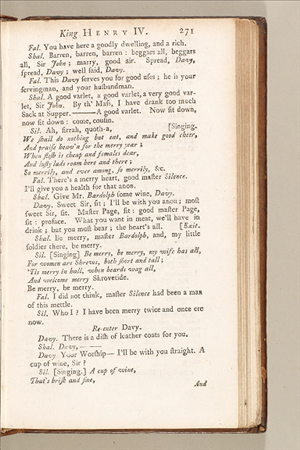 King HENRY IV. 271
Fal. You have here a goodly dwelling, and a rich.
Shal. Barren, barren, barren : beggars all, beggars
all, Sir John ; marry, good air. Spread, Davy,
spread, Davy ; well said, Davy.
Fal. This Davy serves you for good uses ; he is your
servingman, and your husbandman.
Shal. A good varlet, a good varlet, a very good var-
let, Sir John. By th' Mass, I have drank too much
Sack at Supper.———A good varlet. Now sit down,
now sit down : come, cousin.
Sil. Ah, sirrah, quoth-a, [Singing.
We shall do nothing but eat, and make good cheer,
And praise heav'n for the merry year ;
When flesh is cheap and females dear,
And lusty lads roam here and there ;
So merrily, and ever among, so merrily, &c.
Fal. There's a merry heart, good master Silence.
I'll give you a health for that anon.
Shal. Give Mr. Bardolph some wine, Davy.
Davy. Sweet Sir, sit ; I'll be with you anon ; most
sweet Sir, sit. Master Page, sit : good master Page,
sit : proface. What you want in meat, we'll have in
drink ; but you must bear ; the heart's all. [Exit.
Shal. Be merry, master Bardolph, and, my little
soldier there, be merry.
Sil. [Singing] Be merry, be merry, my wife has all,
For women are Shrews, both short and tall ;
'Tis merry in hall, when beards wag all,
And welcome merry Shrovetide.
Be merry, be merry.
Fal. I did not think, master Silence had been a man
of this mettle.
Sil. Who I ? I have been merry twice and once ere
now.
Re-enter Davy.
Davy. There is a dish of leather coats for you.
Shal. Davy,———
Davy. Your Worship— I'll be with you straight. A
cup of wine, Sir ?
Sil. [Singing.] A cup of wine,
That's brisk and fine,
And